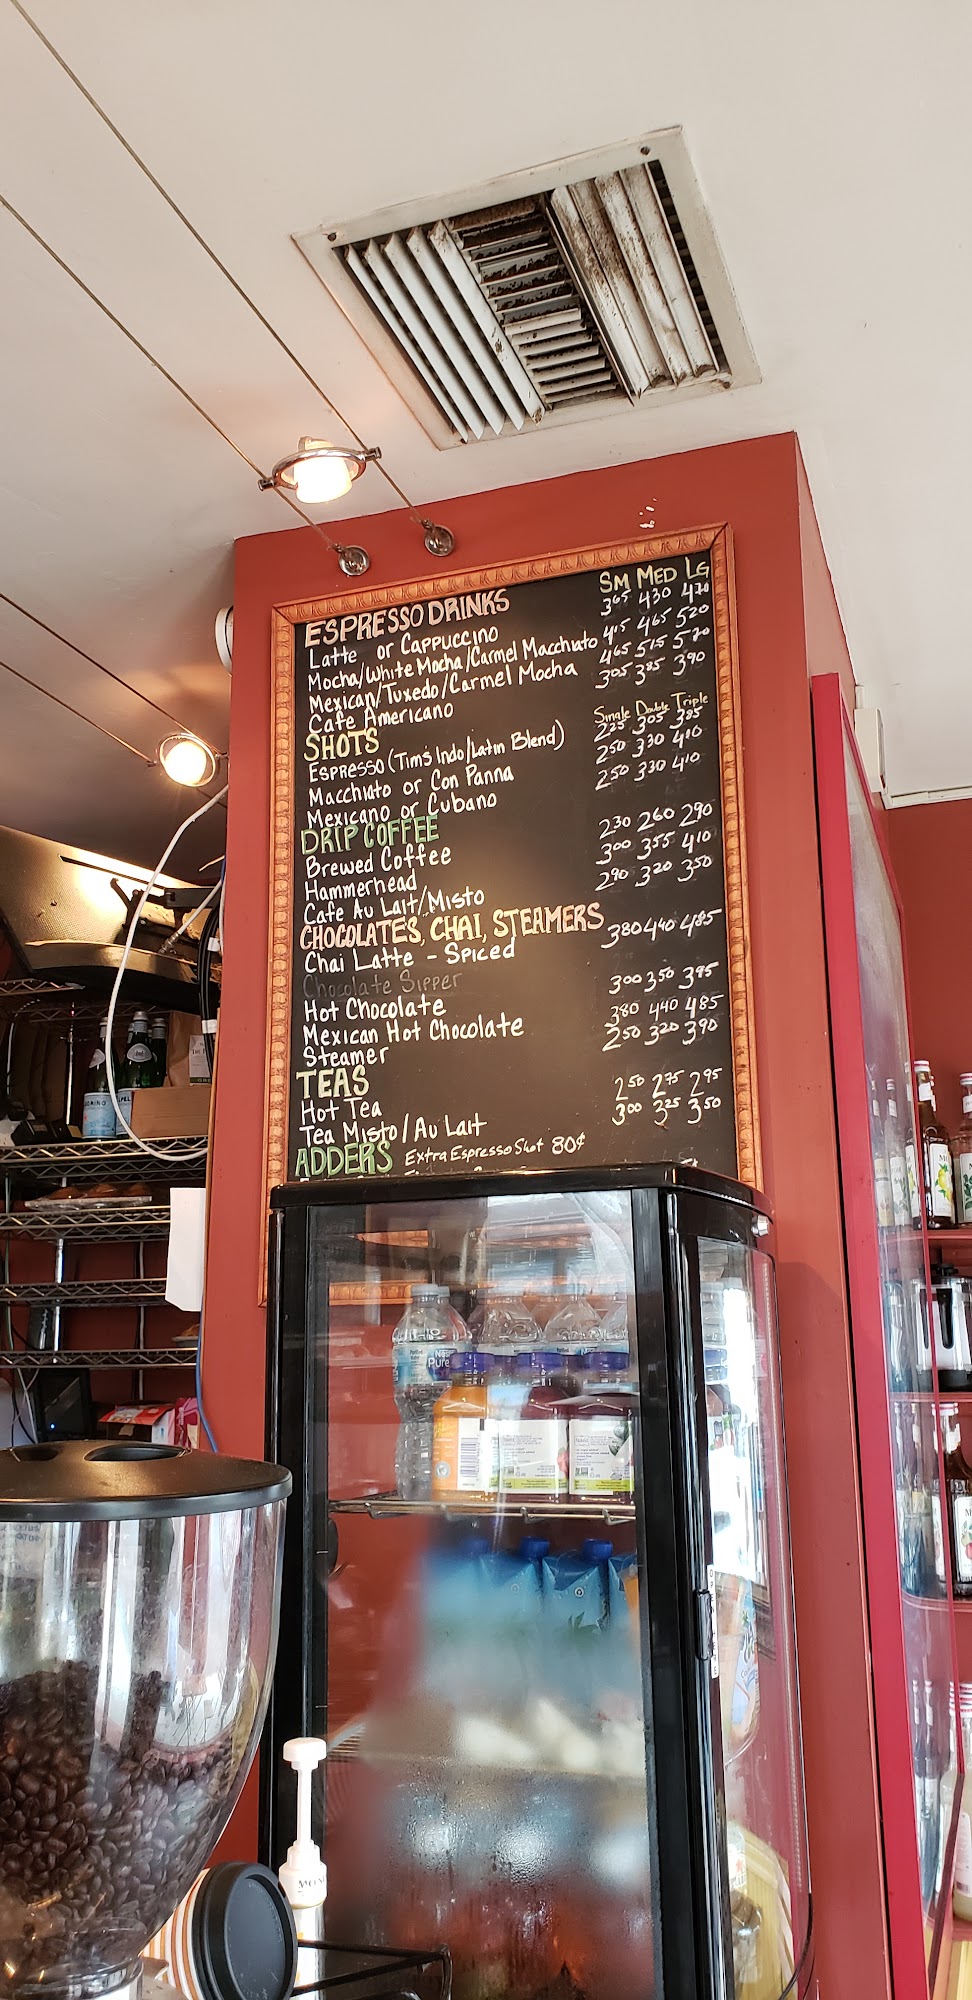 SM MED LG
ESPRESSO DRINKS
Latte or Cappuccino 3⁶⁵ 4³⁰ 4⁷⁰
Mocha/White Mocha/Carmel Macchiato 4¹⁵ 4⁶⁵ 5²⁰
Mexican/Tuxedo/Carmel Mocha 4⁶⁵ 5¹⁵ 5⁷⁰
Cafe Americano 3⁰⁵ 3⁸⁵ 3⁹⁰
SHOTS Single Double Triple
Espresso (Tim's Indo/Latin Blend) 2²⁵ 3⁰⁵ 3⁸⁵
Macchiato or Con Panna 2⁵⁰ 3³⁰ 4¹⁰
Mexicano or Cubano 2⁵⁰ 3³⁰ 4¹⁰
DRIP COFFEE
Brewed Coffee 2³⁰ 2⁶⁰ 2⁹⁰
Hammerhead 3⁰⁰ 3⁵⁵ 4¹⁰
Cafe Au Lait/Misto 2⁹⁰ 3²⁰ 3⁵⁰
CHOCOLATES, CHAI, STEAMERS
Chai Latte - Spiced 3⁸⁰ 4⁴⁰ 4⁸⁵
Chocolate Sipper
Hot Chocolate 3⁰⁰ 3⁵⁰ 3⁹⁵
Mexican Hot Chocolate 3⁸⁰ 4⁴⁰ 4⁸⁵
Steamer 2⁵⁰ 3²⁰ 3⁹⁰
TEAS
Hot Tea 2⁵⁰ 2⁷⁵ 2⁹⁵
Tea Misto/Au Lait 3⁰⁰ 3²⁵ 3⁵⁰
ADDERS Extra Espresso Shot 80¢
Pure